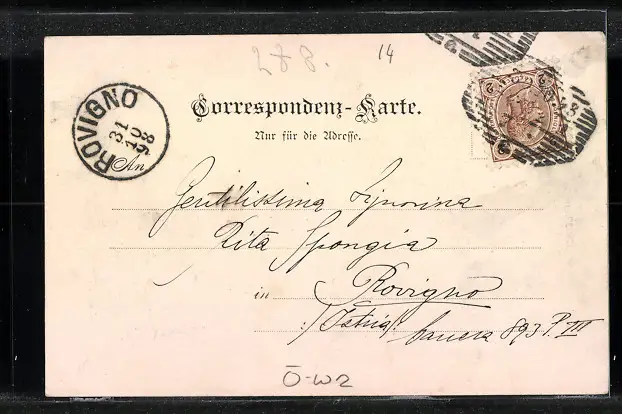 288. 14
ROVIGNO
31
10
98
Correspondenz-Karte.
Nur für die Adresse.
An
Gentilissima Signorina
Rita Spongia
in Rovigno
(Istria)
893 P. III
Ö-W2